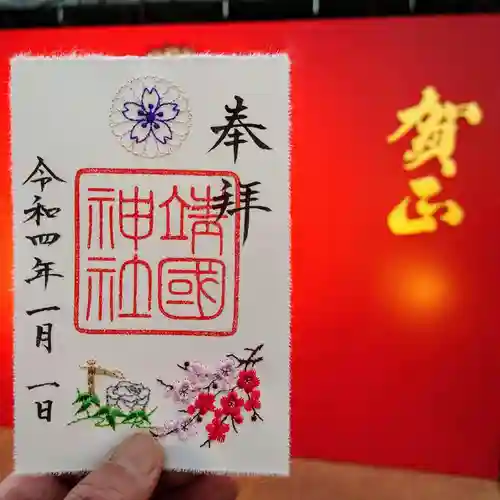 奉拝
靖國
神社
令和四年一月一日
賀正